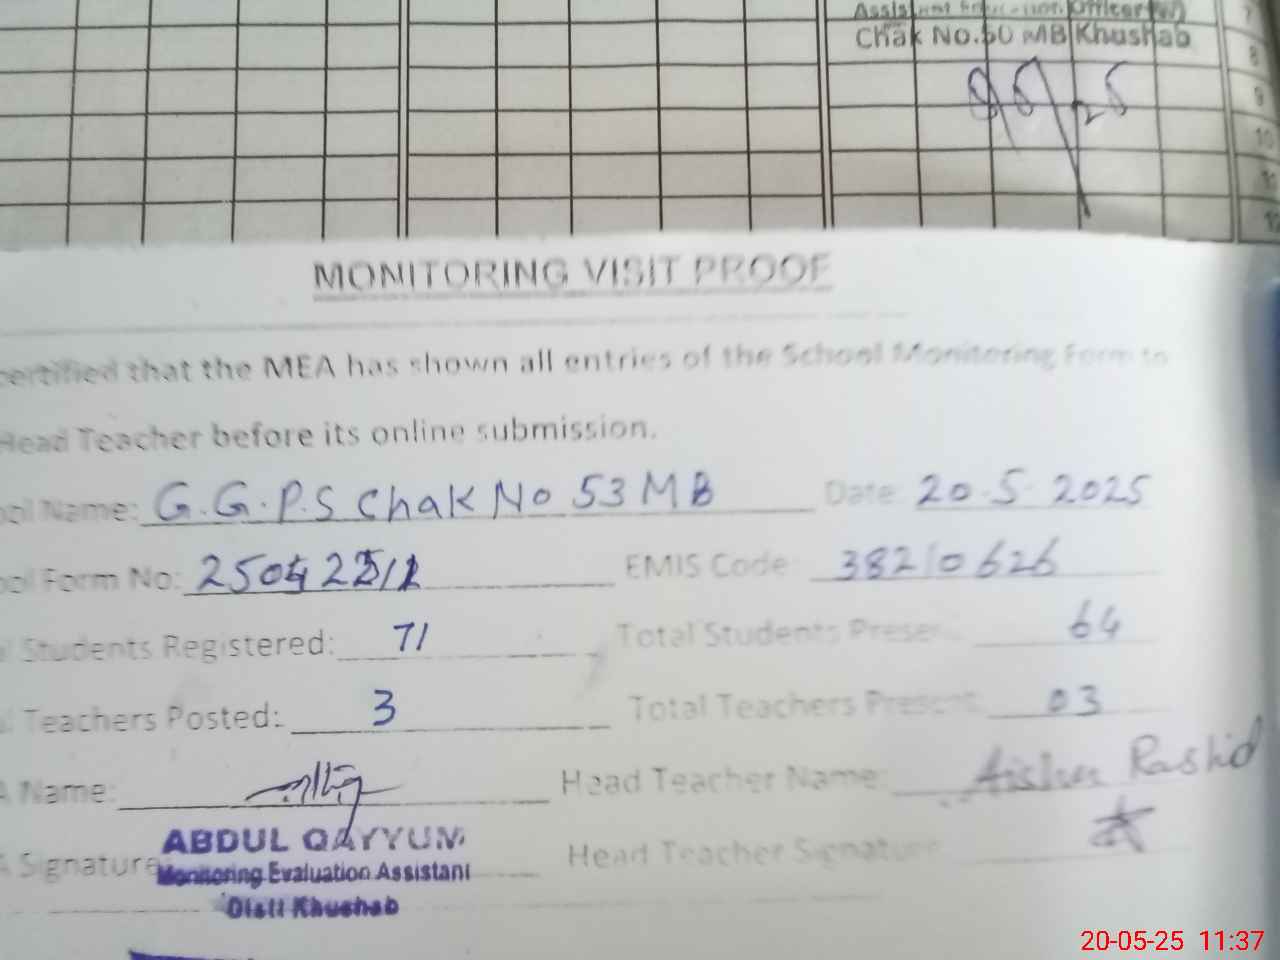 Assistant Education Officer (W)
Chak No.50 MB Khushab
7
8
9
10
11
12
MONITORING VISIT PROOF
certified that the MEA has shown all entries of the School Monitoring Form to
Head Teacher before its online submission.
ool Name: G.G.P.S Chak No 53 MB Date 20.5.2025
ool Form No: EMIS Code: 38210626
l Students Registered: 71 Total Students Present 64
l Teachers Posted: 3 Total Teachers Present 03
A Name: Head Teacher Name: Aisha Rashid
ABDUL QAYYUM
A Signature Head Teacher Signature
Monitoring Evaluation Assistant
Distt Khushab
20-05-25 11:37